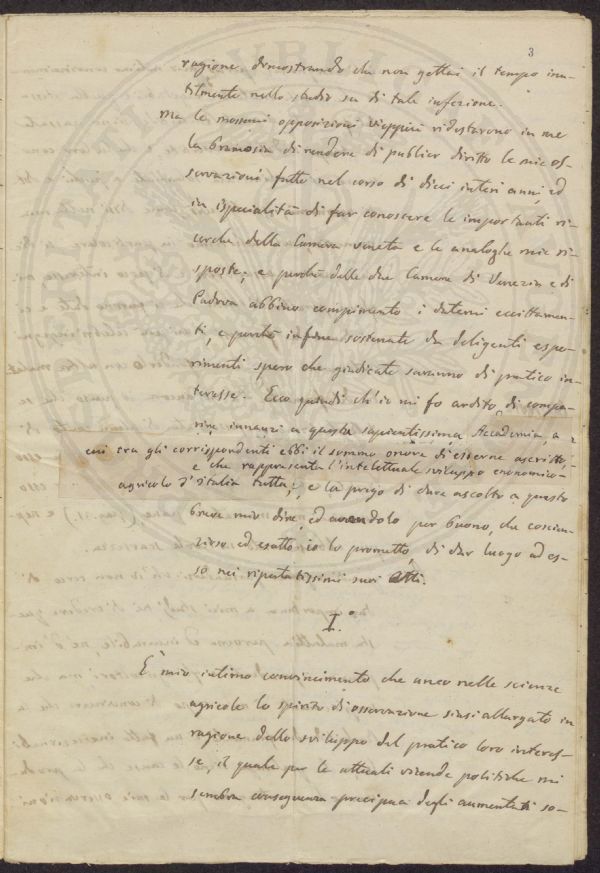 3
ragione, dimostrando che non gettai il tempo inu-
tilmente nello studio su di tale infezione.
Ma le mossemi opposizioni vieppiù ridestarono in me
la bramosia di rendere di publico diritto le mie os-
servazioni fatte nel corso di dieci interi anni, ed
in ispecialità di far conoscere le importanti ri-
cerche della Camera veneta e le analoghe mie ri-
sposte; e perchè dalle due Camere di Venezia e di
Padova abbino compimento i datemi eccittamen-
ti, e perchè infine sostenute da deligenti espe-
rimenti spero che giudicate saranno di pratico in-
teresse. Ecco quindi ch'io mi fo ardito di compa-
rire innanzi a questa sapientissima Accademia, a
cui era gli corrispondenti ebbi il sommo onore di esserne ascritto,
e che rappresenta l'intelettuale sviluppo economico-
agricolo d'Italia tutta; e la prego di dare ascolto a questo
breve mio dire, ed avendolo per buono, che coscien-
zioso ed esatto io lo prometto, di dar luogo ad es-
so nei riputatissimi suoi Atti.
I.°
È mio intimo convincimento che anco nelle scienze
agricole lo spirito di osservazione siasi allargato in
ragione dello sviluppo del pratico loro interes-
se, il quale per le attuali vicende politiche mi
sembra conseguenza precipua degli aumentati so-